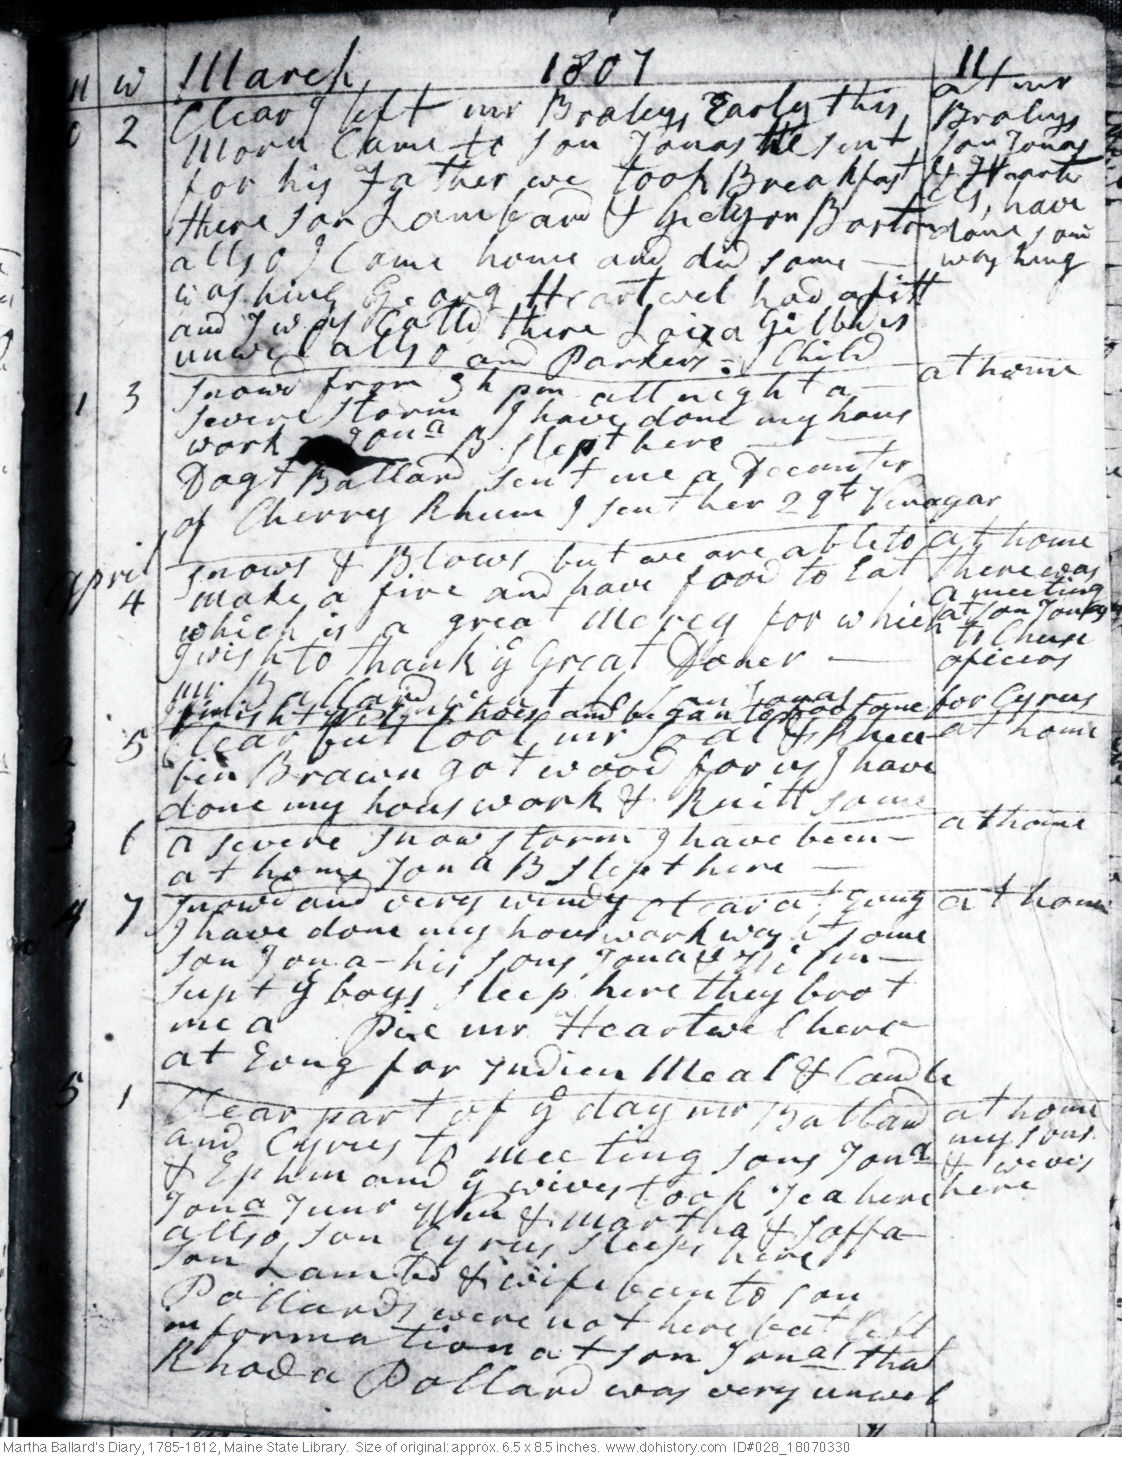 M W March 1807 11
30 2 Clear I left mr Braleys Early this at mr
morn Came to son Jonas He sent Braleys
for his Father we took Breakfast son Jonas
there son Lambard & Gilbson Barton & Heartwels, have
allso I Came home and did some — done som
washing Georg Heartwel had a fitt washing
and I was Calld there Loisa Gilbd is
unwel allso and Parkers Child
31 3 Snowd from 3 h pm all night a at home
severe storm I have done my hous
work Jona B slept here
Dagt Ballard sent me a Decanter
of Cherry Rhum I sent her 2 qts Vinagar
April
4 Snows & Blows but we are able to at home
make a fire and have food to Eat there was
which is a great Mercy for which a meeting
I wish to thank ye Great Doner — at son Jonas
to Chuse
oficers
mr Ballard went to son Jonas for Cyrus
finisht my hose and began to foot some
2 5 Clear but Cool mr Soal & Rheu at home
bin Brawn got wood for us I have
done my hous work & Knitt some
3 6 a severe snow storm I have been at home
at home Jona B slept here —
4 7 Snowd and very windy Clear at Evng at home
I have done my hous work washt some
son Jona his sons Jona & Wilm
supt ye boys sleep here they brot
me a Pie mr Heartwel here
at Evng for Indien Meal & Candle
5 1 Clear part of ye day mr Ballard at home
and Cyrus to meeting sons Jona my sons
& Ephm and ye wives took Tea here & wives
Jona Junr Wm & Martha & Soffa here
allso, son Cyrus sleeps here
son Lambd & wife beanto son
Pollards were not here but left
information at son Jonas that
Rhoda Pollard was very unwel
Martha Ballard's Diary, 1785-1812, Maine State Library. Size of original: approx. 6.5 x 8.5 inches. www.dohistory.com ID#028_18070330